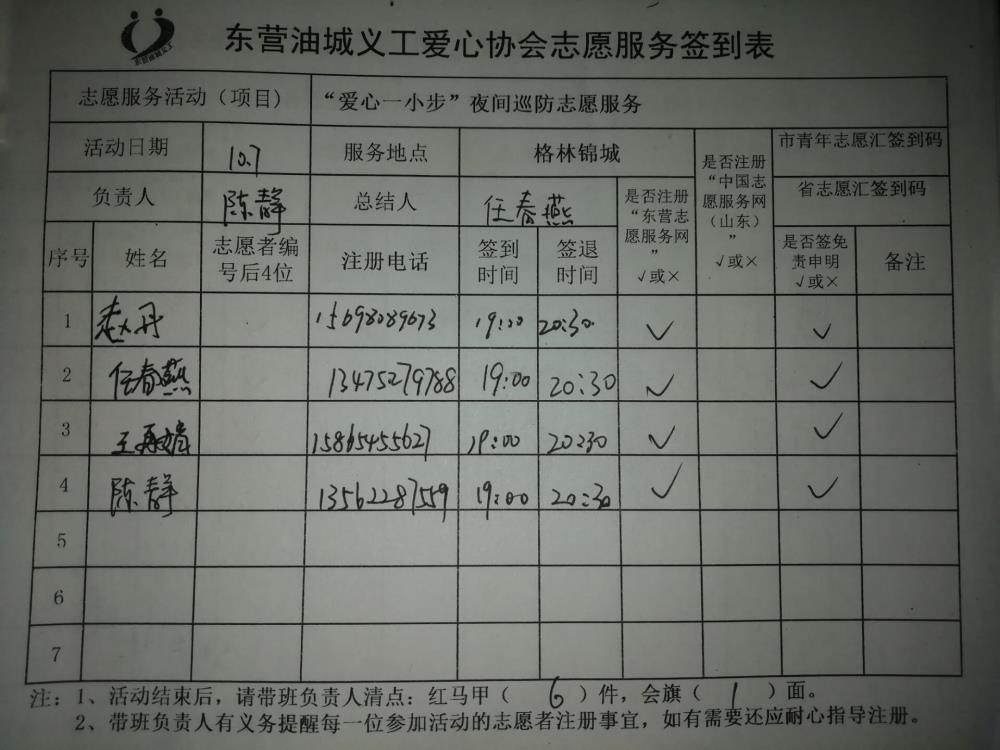 东营油城义工
东营油城义工爱心协会志愿服务签到表
志愿服务活动（项目） “爱心一小步”夜间巡防志愿服务
活动日期 10.7 服务地点 格林锦城 是否注册“中国志愿服务网（山东）” √或× 市青年志愿汇签到码
负责人 陈静 总结人 任春燕 是否注册“东营志愿服务网” √或× 省志愿汇签到码
序号 姓名 志愿者编号后4位 注册电话 签到时间 签退时间 是否签免责申明 √或× 备注
1 赵丹 15698089673 19:00 20:30 ✓ ✓
2 任春燕 13475279788 19:00 20:30 ✓ ✓
3 王 15865455627 19:00 20:30 ✓ ✓
4 陈静 13562287559 19:00 20:30 ✓ ✓
5
6
7
注：1、活动结束后，请带班负责人清点：红马甲（ 6 ）件，会旗（ 1 ）面。
2、带班负责人有义务提醒每一位参加活动的志愿者注册事宜，如有需要还应耐心指导注册。